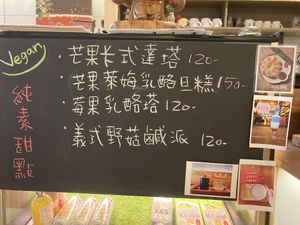 Vegan
純素甜點
·芒果卡式達塔120-
·芒果萊姆乳酪旦糕150-
·莓果乳酪塔120-
·義式野菇鹹派 120-